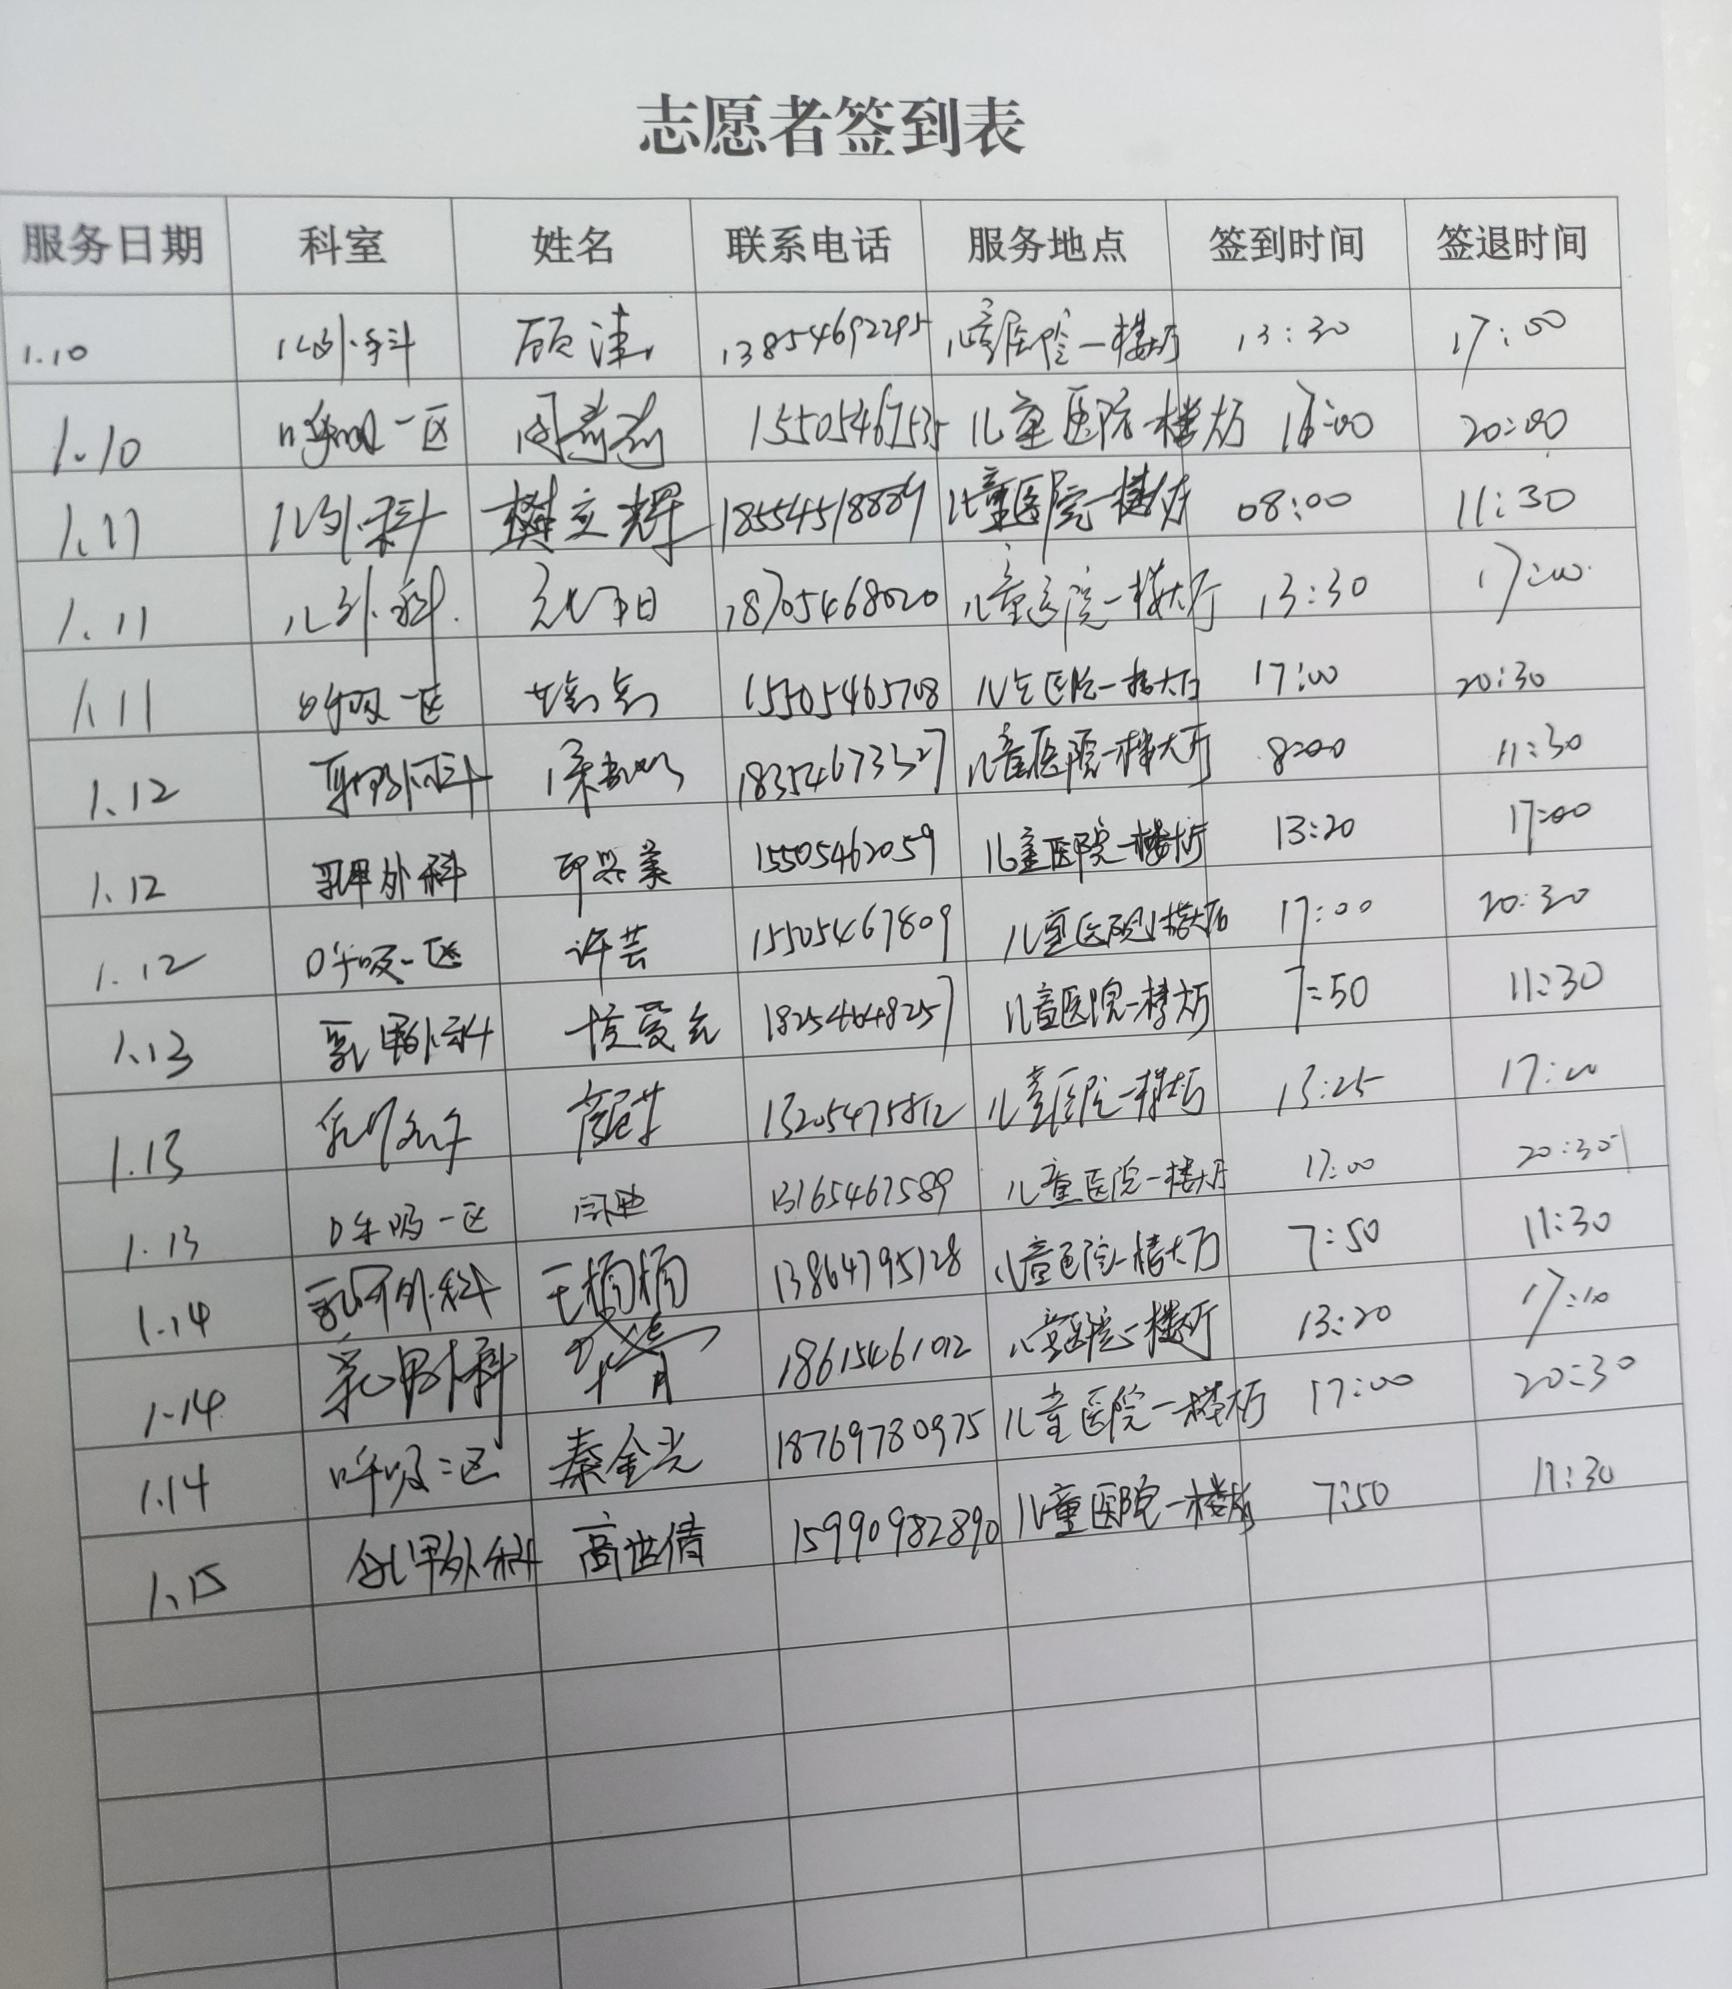 志愿者签到表
服务日期 科室 姓名 联系电话 服务地点 签到时间 签退时间
1.10 儿外科 顾涛 13854692295 儿童医院一楼大厅 13:30 17:00
1.10 呼吸一区 1550546753 儿童医院一楼大厅 20:00
1.11 儿外科 樊立辉 18554518889 儿童医院一楼大厅 08:00 11:30
1.11 儿外科 18705468020 儿童医院一楼大厅 13:30 17:00
1.11 呼吸一区 15505465708 儿童医院一楼大厅 17:00 20:30
1.12 乳甲外科 18354673327 儿童医院一楼大厅 8:00 11:30
1.12 乳甲外科 15505462059 儿童医院一楼大厅 13:20 17:00
1.12 呼吸一区 许芸 15505467809 儿童医院1楼大厅 17:00 20:30
1.13 乳甲外科 18254648257 儿童医院一楼大厅 7:50 11:30
1.13 乳甲外科 儿童医院一楼大厅 13:25 17:00
1.13 呼吸一区 13165467589 儿童医院一楼大厅 17:00 20:30
1.14 乳甲外科 王楠楠 13864795128 儿童医院一楼大厅 7:50 11:30
1.14 乳甲外科 18615461012 儿童医院一楼大厅 13:20 17:10
1.14 呼吸二区 秦金光 18769780975 儿童医院一楼大厅 17:00 20:30
1.15 乳甲外科 高世倩 15990982890 儿童医院一楼大厅 7:50 11:30